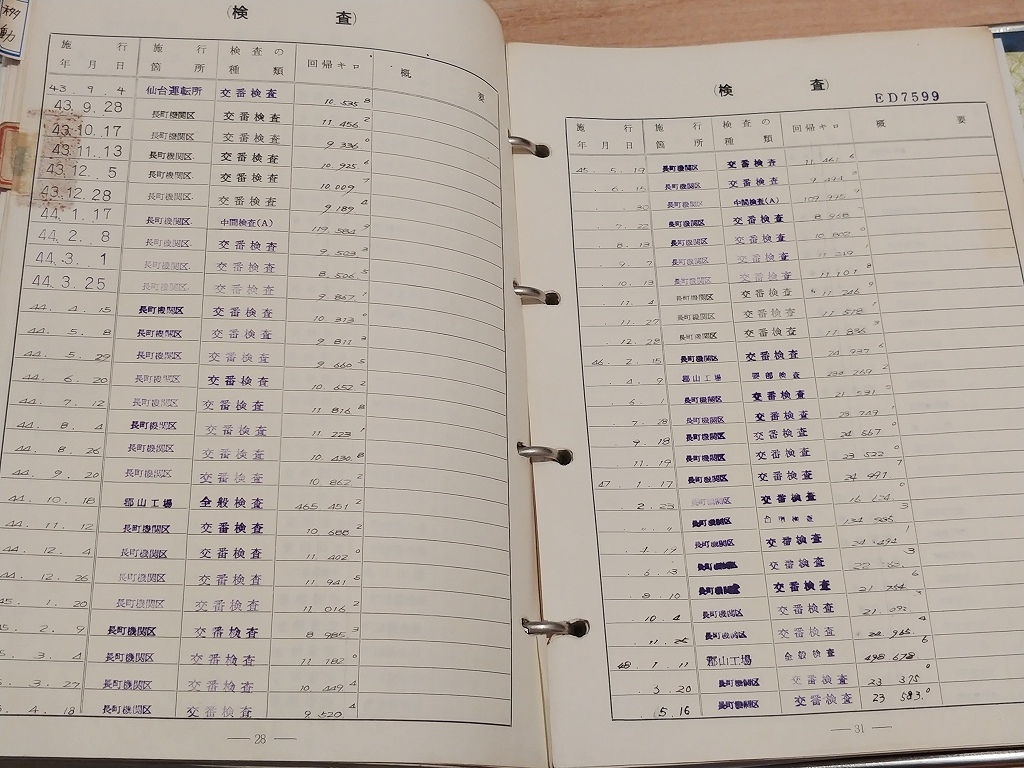 (検 査)
施行年月日 施行箇所 検査の種類 回帰キロ 概要
43. 9. 4 仙台運転所 交番検査 10 535 8
43. 9. 28 長町機関区 交番検査 11 456 2
43. 10. 17 長町機関区 交番検査 9 336 0
43. 11. 13 長町機関区 交番検査 10 925 6
43. 12. 5 長町機関区 交番検査 10 009 7
43. 12. 28 長町機関区 交番検査 9 189 4
44. 1. 17 長町機関区 中間検査(A) 119 584 9
44. 2. 8 長町機関区 交番検査 9 503 3
44. 3. 1 長町機関区 交番検査 8 506 5
44. 3. 25 長町機関区 交番検査 9 867 1
44. 4. 15 長町機関区 交番検査 10 313 0
44. 5. 8 長町機関区 交番検査 9 811 3
44. 5. 29 長町機関区 交番検査 9 660 5
44. 6. 20 長町機関区 交番検査 10 652 2
44. 7. 12 長町機関区 交番検査 11 816 8
44. 8. 4 長町機関区 交番検査 11 223 1
44. 8. 26 長町機関区 交番検査 10 430 8
44. 9. 20 長町機関区 交番検査 10 862 2
44. 10. 18 郡山工場 全般検査 465 451 2
44. 11. 12 長町機関区 交番検査 10 688 2
44. 12. 4 長町機関区 交番検査 11 402 0
44. 12. 26 長町機関区 交番検査 11 941 5
45. 1. 20 長町機関区 交番検査 11 016 2
45. 2. 9 長町機関区 交番検査 8 985 3
. 3. 4 長町機関区 交番検査 11 182 0
. 3. 27 長町機関区 交番検査 10 449 4
. 4. 18 長町機関区 交番検査 9 520 4
— 28 —
(検 査)
ED7599
施行年月日 施行箇所 検査の種類 回帰キロ 概要
45. 5. 19 長町機関区 交番検査 11 461 6
. 6. 15 長町機関区 交番検査
. . 30 長町機関区 中間検査(A) 109 995
. 7. 22 長町機関区 交番検査 8 968
. 8. 13 長町機関区 交番検査 10 802 0
. 9. 7 長町機関区 交番検査 11 219
. 10. 13 長町機関区 交番検査 11 101 8
. 11. 4 長町機関区 交番検査 11 246 9
. 11. 27 長町機関区 交番検査 11 578 1
. 12. 28 長町機関区 交番検査 11 836 3
46. 2. 15 長町機関区 交番検査 24 937 6
. 4. 9 郡山工場 要部検査 233 269 2
. 6. 1 長町機関区 交番検査 21 531 5
. 7. 28 長町機関区 交番検査 23 749 1
. 9. 18 長町機関区 交番検査 24 567
. 11. 19 長町機関区 交番検査 23 522 0
47. 1. 17 長町機関区 交番検査 24 991 7
. 2. 23 長町機関区 交番検査 16 124 0
長町機関区 台車検査 134 535 3
. 4. 19 長町機関区 交番検査 24 494 1
交番検査
. 8. 10 長町機関区 交番検査 21 764 6
. 10. 4 長町機関区 交番検査 21 092
. 11. 25 長町機関区 交番検査 24 965 4
48. 1. 11 郡山工場 全般検査 498 678 6
. 3. 20 長町機関区 交番検査 23 375 0
. 5. 16 長町機関区 交番検査 23 583 0
— 31 —